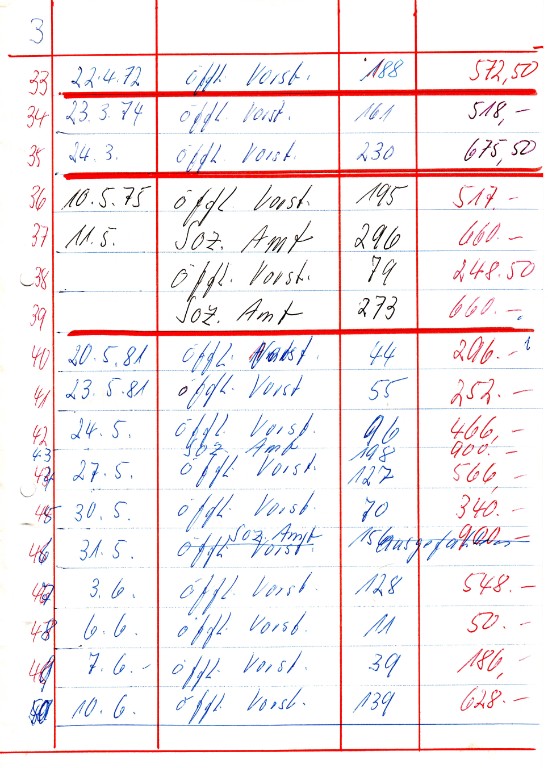 3
33 22.4.72 öffl. Vorst. 188 572,50
34 23.3.74 öffl. Vorst. 161 518,-
35 24.3. öffl. Vorst. 230 675,50
36 10.5.75 öffl. Vorst. 195 517.-
37 11.5. Soz. Amt 296 660.-
38 öffl. Vorst. 79 248.50
39 Soz. Amt 273 660.-
40 20.5.81 öffl. Vorst 44 296.-
41 23.5.81 öffl. Vorst 55 252.-
42 24.5. öffl. Vorst. 96 466,-
43 Soz. Amt 198 900.-
44 27.5. öffl. Vorst. 127 566,-
45 30.5. öffl. Vorst. 70 340.-
46 31.5. öffl. Vorst Soz. Amt 156 900.-
47 3.6. öffl. Vorst. 128 548.-
48 6.6. öffl. Vorst. 11 50.-
49 7.6.- öffl. Vorst. 39 186,-
50 10.6. öffl. Vorst. 139 628.-